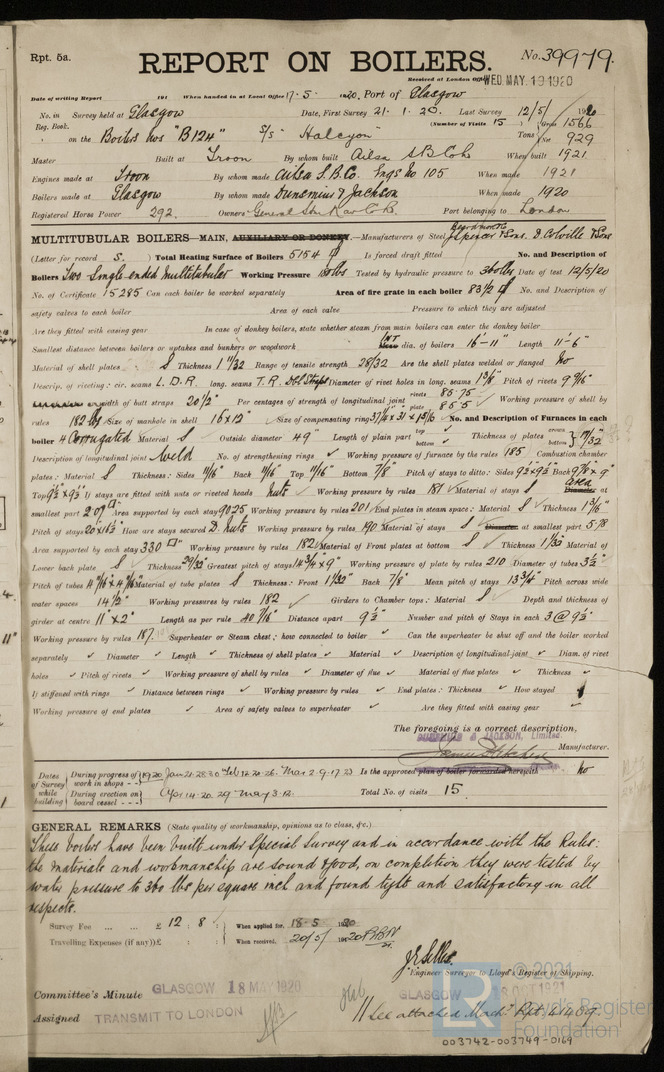 Rpt. 5a.
REPORT ON BOILERS.
No. 39979.
Received at London Office WED. MAY. 19 1920
Date of writing Report 191 When handed in at Local Office 17-5- 1920. Port of Glasgow
No. in Survey held at Glasgow Date, First Survey 21-1-20. Last Survey 12/5/ 1920
Reg. Book. (Number of Visits 15) Gross 1566
on the Boilers nos "B124" S/S "Halcyon" Tons Net 929
Master Built at Troon By whom built Ailsa S.B. Co When built 1921
Engines made at Troon By whom made Ailsa S.B. Co. Engs No 105 When made 1921
Boilers made at Glasgow By whom made Dunsmuir & Jackson When made 1920
Registered Horse Power 292. Owners General Stm Nav Co Port belonging to London
MULTITUBULAR BOILERS—MAIN, AUXILIARY OR DONKEY.—Manufacturers of Steel Beardmore J. Spencer & Sons. D. Colville & Sons
(Letter for record S.) Total Heating Surface of Boilers 5154 Is forced draft fitted No. and Description of
Boilers Two Single ended Multitubular Working Pressure 180 lbs Tested by hydraulic pressure to 360 lbs Date of test 12/5/20
No. of Certificate 15285 Can each boiler be worked separately Area of fire grate in each boiler 83 1/2 No. and Description of
safety valves to each boiler Area of each valve Pressure to which they are adjusted
Are they fitted with easing gear In case of donkey boilers, state whether steam from main boilers can enter the donkey boiler
Smallest distance between boilers or uptakes and bunkers or woodwork INT dia. of boilers 16'-11" Length 11'-6"
Material of shell plates S Thickness 1 11/32 Range of tensile strength 28/32 Are the shell plates welded or flanged No
Descrip. of riveting: cir. seams L.D.R. long. seams T.R. Dbl Straps Diameter of rivet holes in long. seams 1 3/8" Pitch of rivets 9 9/16"
width of butt straps 20 1/2" Per centages of strength of longitudinal joint rivets 85.75 plate 85.5 Working pressure of shell by
rules 182 lbs Size of manhole in shell 16 x 12" Size of compensating ring No. and Description of Furnaces in each
boiler 4 Corrugated Material S Outside diameter 49" Length of plain part top bottom Thickness of plates crown bottom 17/32"
Description of longitudinal joint Weld No. of strengthening rings Working pressure of furnace by the rules 185 Combustion chamber
plates: Material S Thickness: Sides 11/16" Back 11/16" Top 11/16" Bottom 7/8" Pitch of stays to ditto: Sides 9 1/2 x 9 1/2" Back 9 7/8 x 9"
Top 9 1/2 x 9 1/2 If stays are fitted with nuts or riveted heads Nuts Working pressure by rules 181 Material of stays S Area Diameter at
smallest part 2.07 Area supported by each stay 90.25 Working pressure by rules 201 End plates in steam space: Material S Thickness 1 3/16"
Pitch of stays 20" x 16 1/2" How are stays secured D. Nuts Working pressure by rules 190 Material of stays S Diameter at smallest part 5.78
Area supported by each stay 330 Working pressure by rules 182 Material of Front plates at bottom S Thickness 1 1/32" Material of
Lower back plate S Thickness 29/32" Greatest pitch of stays 14 3/4 x 9" Working pressure of plate by rules 210 Diameter of tubes 3 1/2"
Pitch of tubes 4 11/16 x 4 11/16 Material of tube plates S Thickness: Front 1 1/32" Back 7/8" Mean pitch of stays 13 3/4" Pitch across wide
water spaces 14 1/2" Working pressures by rules 182 Girders to Chamber tops: Material S Depth and thickness of
girder at centre 11" x 2" Length as per rule 40 7/16" Distance apart 9 1/2" Number and pitch of Stays in each 3 @ 9 1/2"
Working pressure by rules 187 Superheater or Steam chest; how connected to boiler Can the superheater be shut off and the boiler worked
separately Diameter Length Thickness of shell plates Material Description of longitudinal joint Diam. of rivet
holes Pitch of rivets Working pressure of shell by rules Diameter of flue Material of flue plates Thickness
If stiffened with rings Distance between rings Working pressure by rules End plates: Thickness How stayed
Working pressure of end plates Area of safety valves to superheater Are they fitted with easing gear
The foregoing is a correct description,
DUNSMUIR & JACKSON, Limited.
Manufacturer.
Dates of Survey while building During progress of work in shops - - 1920 Jan 21. 28. 30 Feb 12. 24. 26. Mar 2. 9. 17. 23 Is the approved plan of boiler forwarded herewith No
During erection on board vessel - - - Apr 14. 20. 29. May 3. 12. Total No. of visits 15
GENERAL REMARKS (State quality of workmanship, opinions as to class, &c.)
These boilers have been built under Special Survey and in accordance with the Rules:
the materials and workmanship are sound & good, on completion they were tested by
water pressure to 360 lbs per square inch and found tight and satisfactory in all
respects.
Survey Fee ... ... £ 12 : 8 : When applied for, 18-5 1920
Travelling Expenses (if any) £ : : When received, 20/5/ 1920
Engineer Surveyor to Lloyd's Register of Shipping.
Committee's Minute GLASGOW 18 MAY 1920 GLASGOW OCT 1921
Assigned TRANSMIT TO LONDON See attached Mach. Rpt. 41409.
© 2021
Lloyd's Register
Foundation
003742-003749-0169